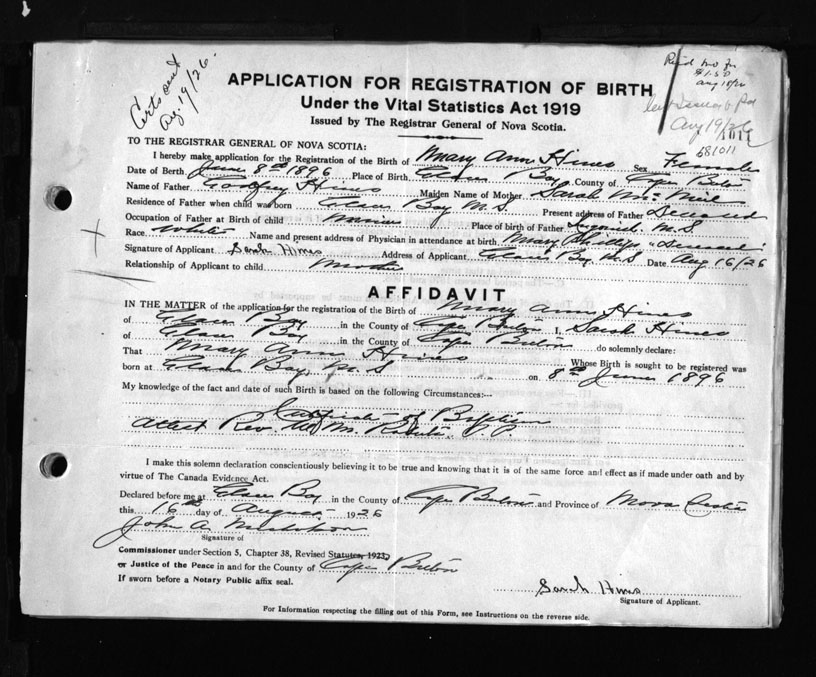 Certs sent
Aug. 19/26.
APPLICATION FOR REGISTRATION OF BIRTH
Under the Vital Statistics Act 1919
Issued by The Registrar General of Nova Scotia.
$1.50
Aug 19/26
1011
581011
TO THE REGISTRAR GENERAL OF NOVA SCOTIA:
I hereby make application for the Registration of the Birth of Mary Ann Hines Sex Female
Date of Birth June 8th 1896 Place of Birth Glace Bay County of Cape Breton
Name of Father Godfrey Hines Maiden Name of Mother Sarah McNeil
Residence of Father when child was born Glace Bay N.S Present address of Father Deceased
Occupation of Father at Birth of child Place of birth of Father N.S
Race White Name and present address of Physician in attendance at birth Mary Phillips "Deceased"
Signature of Applicant Sarah Hines Address of Applicant Glace Bay N.S Date Aug 16/26
Relationship of Applicant to child Mother
AFFIDAVIT
IN THE MATTER of the application for the registration of the Birth of Mary Ann Hines
of Glace Bay in the County of Cape Breton I, Sarah Hines
of Glace Bay in the County of Cape Breton do solemnly declare:
That Mary Ann Hines Whose Birth is sought to be registered was
born at Glace Bay, N.S on 8th June 1896
My knowledge of the fact and date of such Birth is based on the following Circumstances:--
Certificate of Baptism
Attest Rev. P.P.
I make this solemn declaration conscientiously believing it to be true and knowing that it is of the same force and effect as if made under oath and by
virtue of The Canada Evidence Act.
Declared before me at Glace Bay in the County of Cape Breton and Province of Nova Scotia
this 16th day of August 1926
John A.
Signature of
Commissioner under Section 5, Chapter 38, Revised Statutes, 1923,
or Justice of the Peace in and for the County of Cape Breton
If sworn before a Notary Public affix seal.
Sarah Hines
Signature of Applicant.
For Information respecting the filling out of this Form, see Instructions on the reverse side.